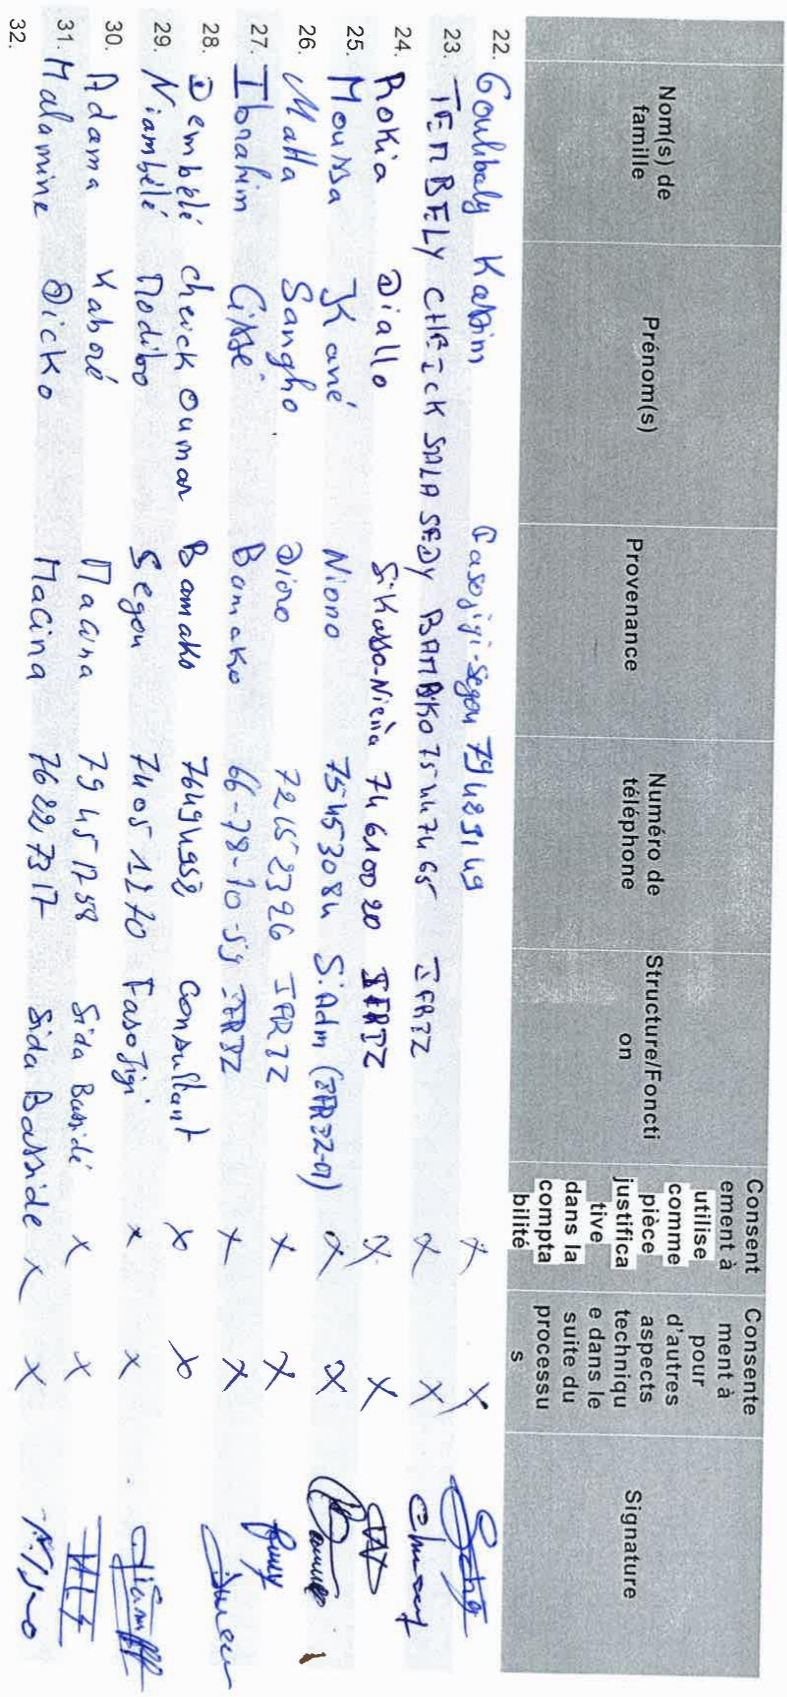 Nom(s) de famille Prénom(s) Provenance Numéro de téléphone Structure/Foncti on Consent ement à utilise comme pièce justifica tive dans la compta bilité Consente ment à pour d'autres aspects techniqu e dans le suite du processu s Signature
22. Coulibaly Kassim Fasojigi-Segou 79489149 X X
23. TEMBELY CHEICK SALA SEDY BAMAKO 75447465 IFRIZ X X
24. Rokia Diallo Sikasso-Niena 74610020 IFRIZ X X
25. Moussa Kané Niono 75453084 S.Adm X X
26. Matta Sangho Dioro 72152396 IFRIZ X X
27. Ibrahim Cissé Bamako 66-78-10-59 IFRIZ X X
28. Dembélé cheick Oumar Bamako 76494958 Consultant X X
29. Niambélé Modibo Segou 74051270 Faso Jigi X X
30. Adama Kaboré Macina 79451758 Sida Basside X X
31. Malamine Dicko Macina 76227317 Sida Basside X X
32.